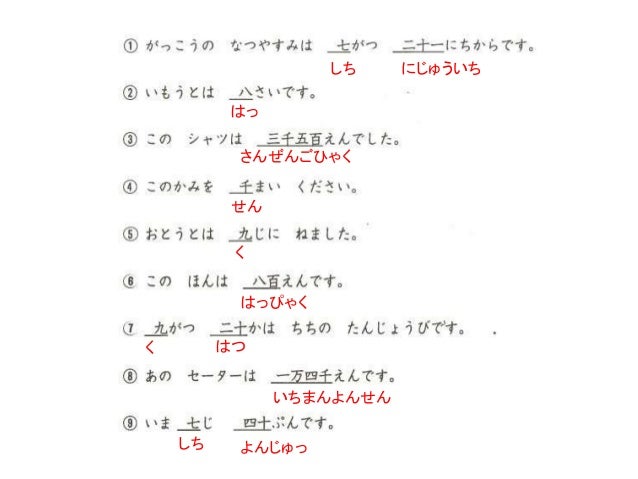 ① がっこうの なつやすみは 七がつ 二十一にちからです。
しち にじゅういち
② いもうとは 八さいです。
はっ
③ この シャツは 三千五百えんでした。
さんぜんごひゃく
④ このかみを 千まい ください。
せん
⑤ おとうとは 九じに ねました。
く
⑥ この ほんは 八百えんです。
はっぴゃく
⑦ 九がつ 二十かは ちちの たんじょうびです。
く はつ
⑧ あの セーターは 一万四千えんです。
いちまんよんせん
⑨ いま 七じ 四十ぷんです。
しち よんじゅっ